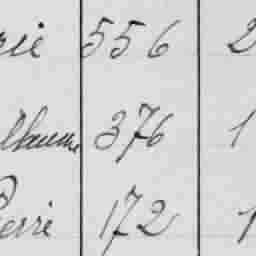 rie 556 2
llaume 376 1
Pierre 172 1